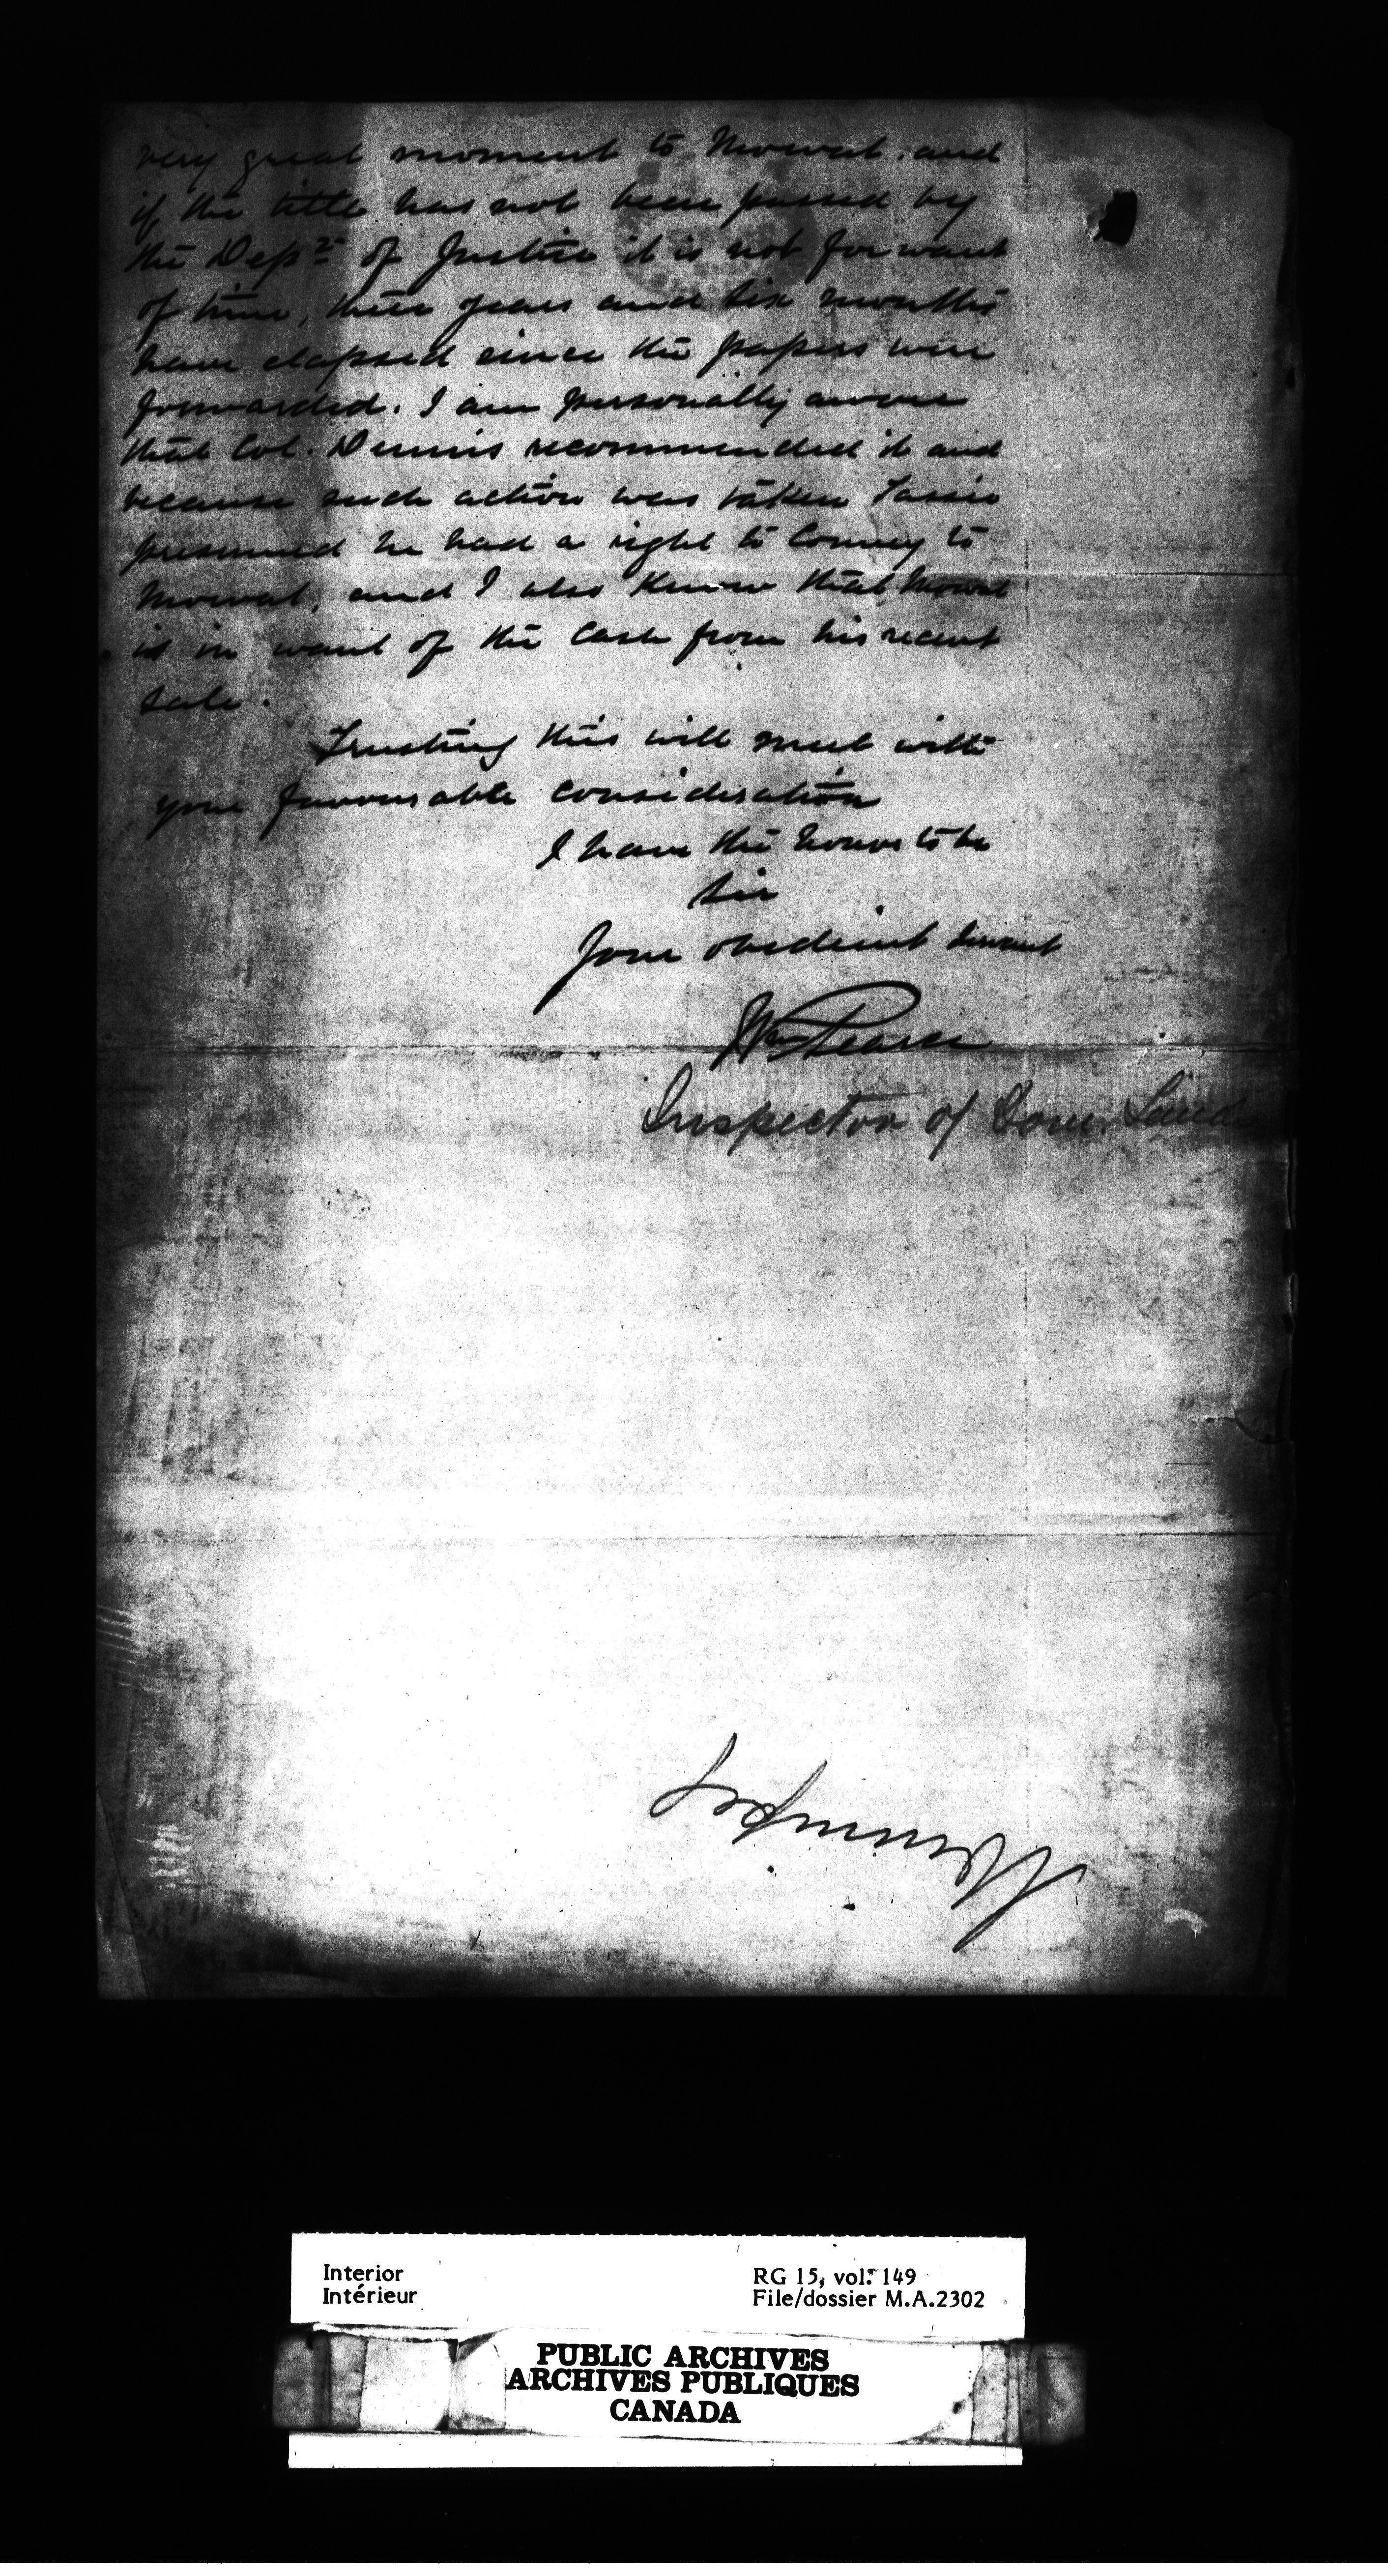 very great moment to Mowat. and
if the title has not been passed by
the Dept of Justice it is not for want
of time, three years and six months
have elapsed since the papers were
forwarded. I am personally aware
that Col. Dennis recommended it and
because such action was taken
presumed he had a right to convey to
Mowat, and I also know that Mowat
is in want of the cash from his recent
sale.
Trusting this will meet with
your favourable consideration
I have the honor to be
Sir
Your obedient servant
Wm Pearce
Inspector of Dom. Lands
Winnipeg
Interior
Intérieur
RG 15, vol. 149
File/dossier M.A.2302
PUBLIC ARCHIVES
ARCHIVES PUBLIQUES
CANADA